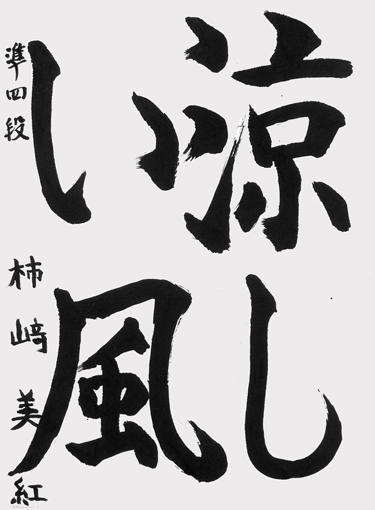 涼し
い風
準四段 柿﨑美紅